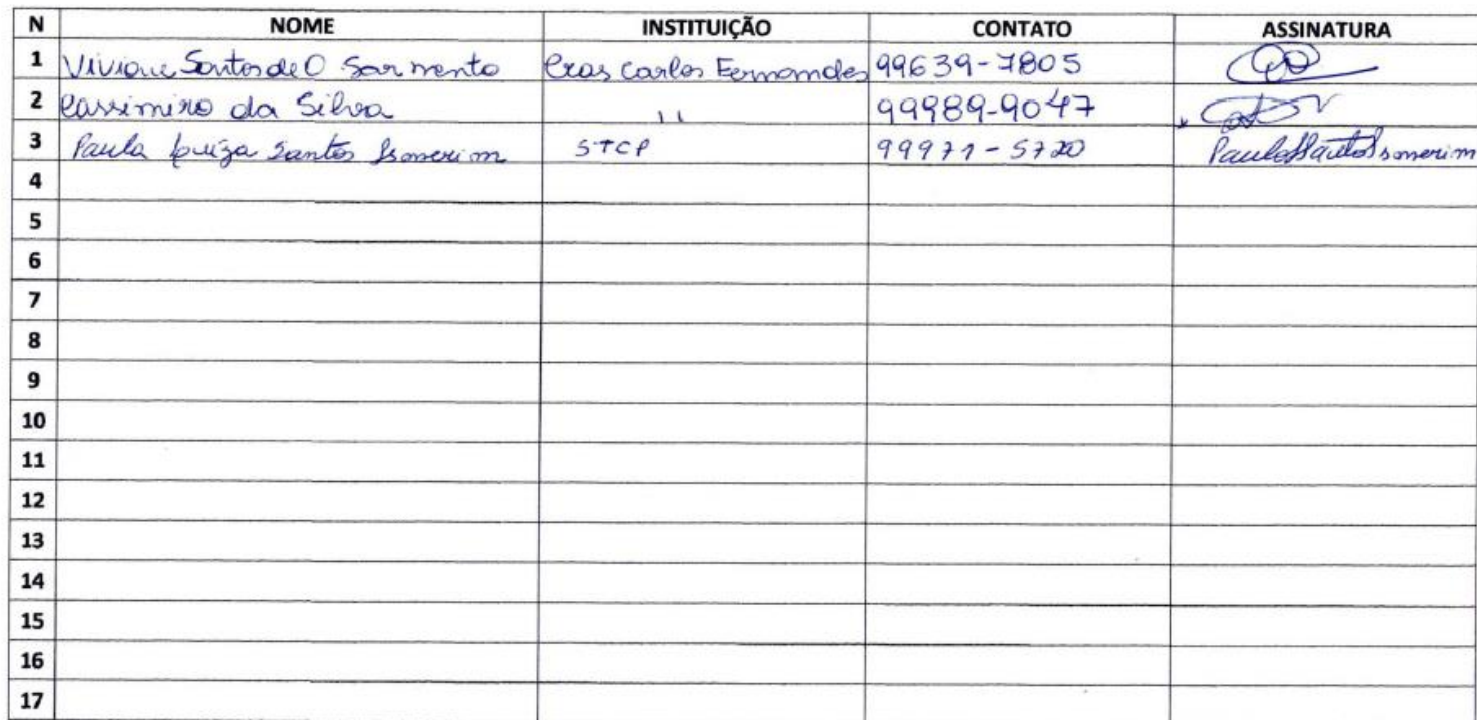 N NOME INSTITUIÇÃO CONTATO ASSINATURA
1 Viviane Santos de O Sarmento Cras Carlos Fernandes 99639-7805
2 Cassimiro da Silva " 99989-9047
3 Paula Luiza Santos STCP 99971-5720
4
5
6
7
8
9
10
11
12
13
14
15
16
17